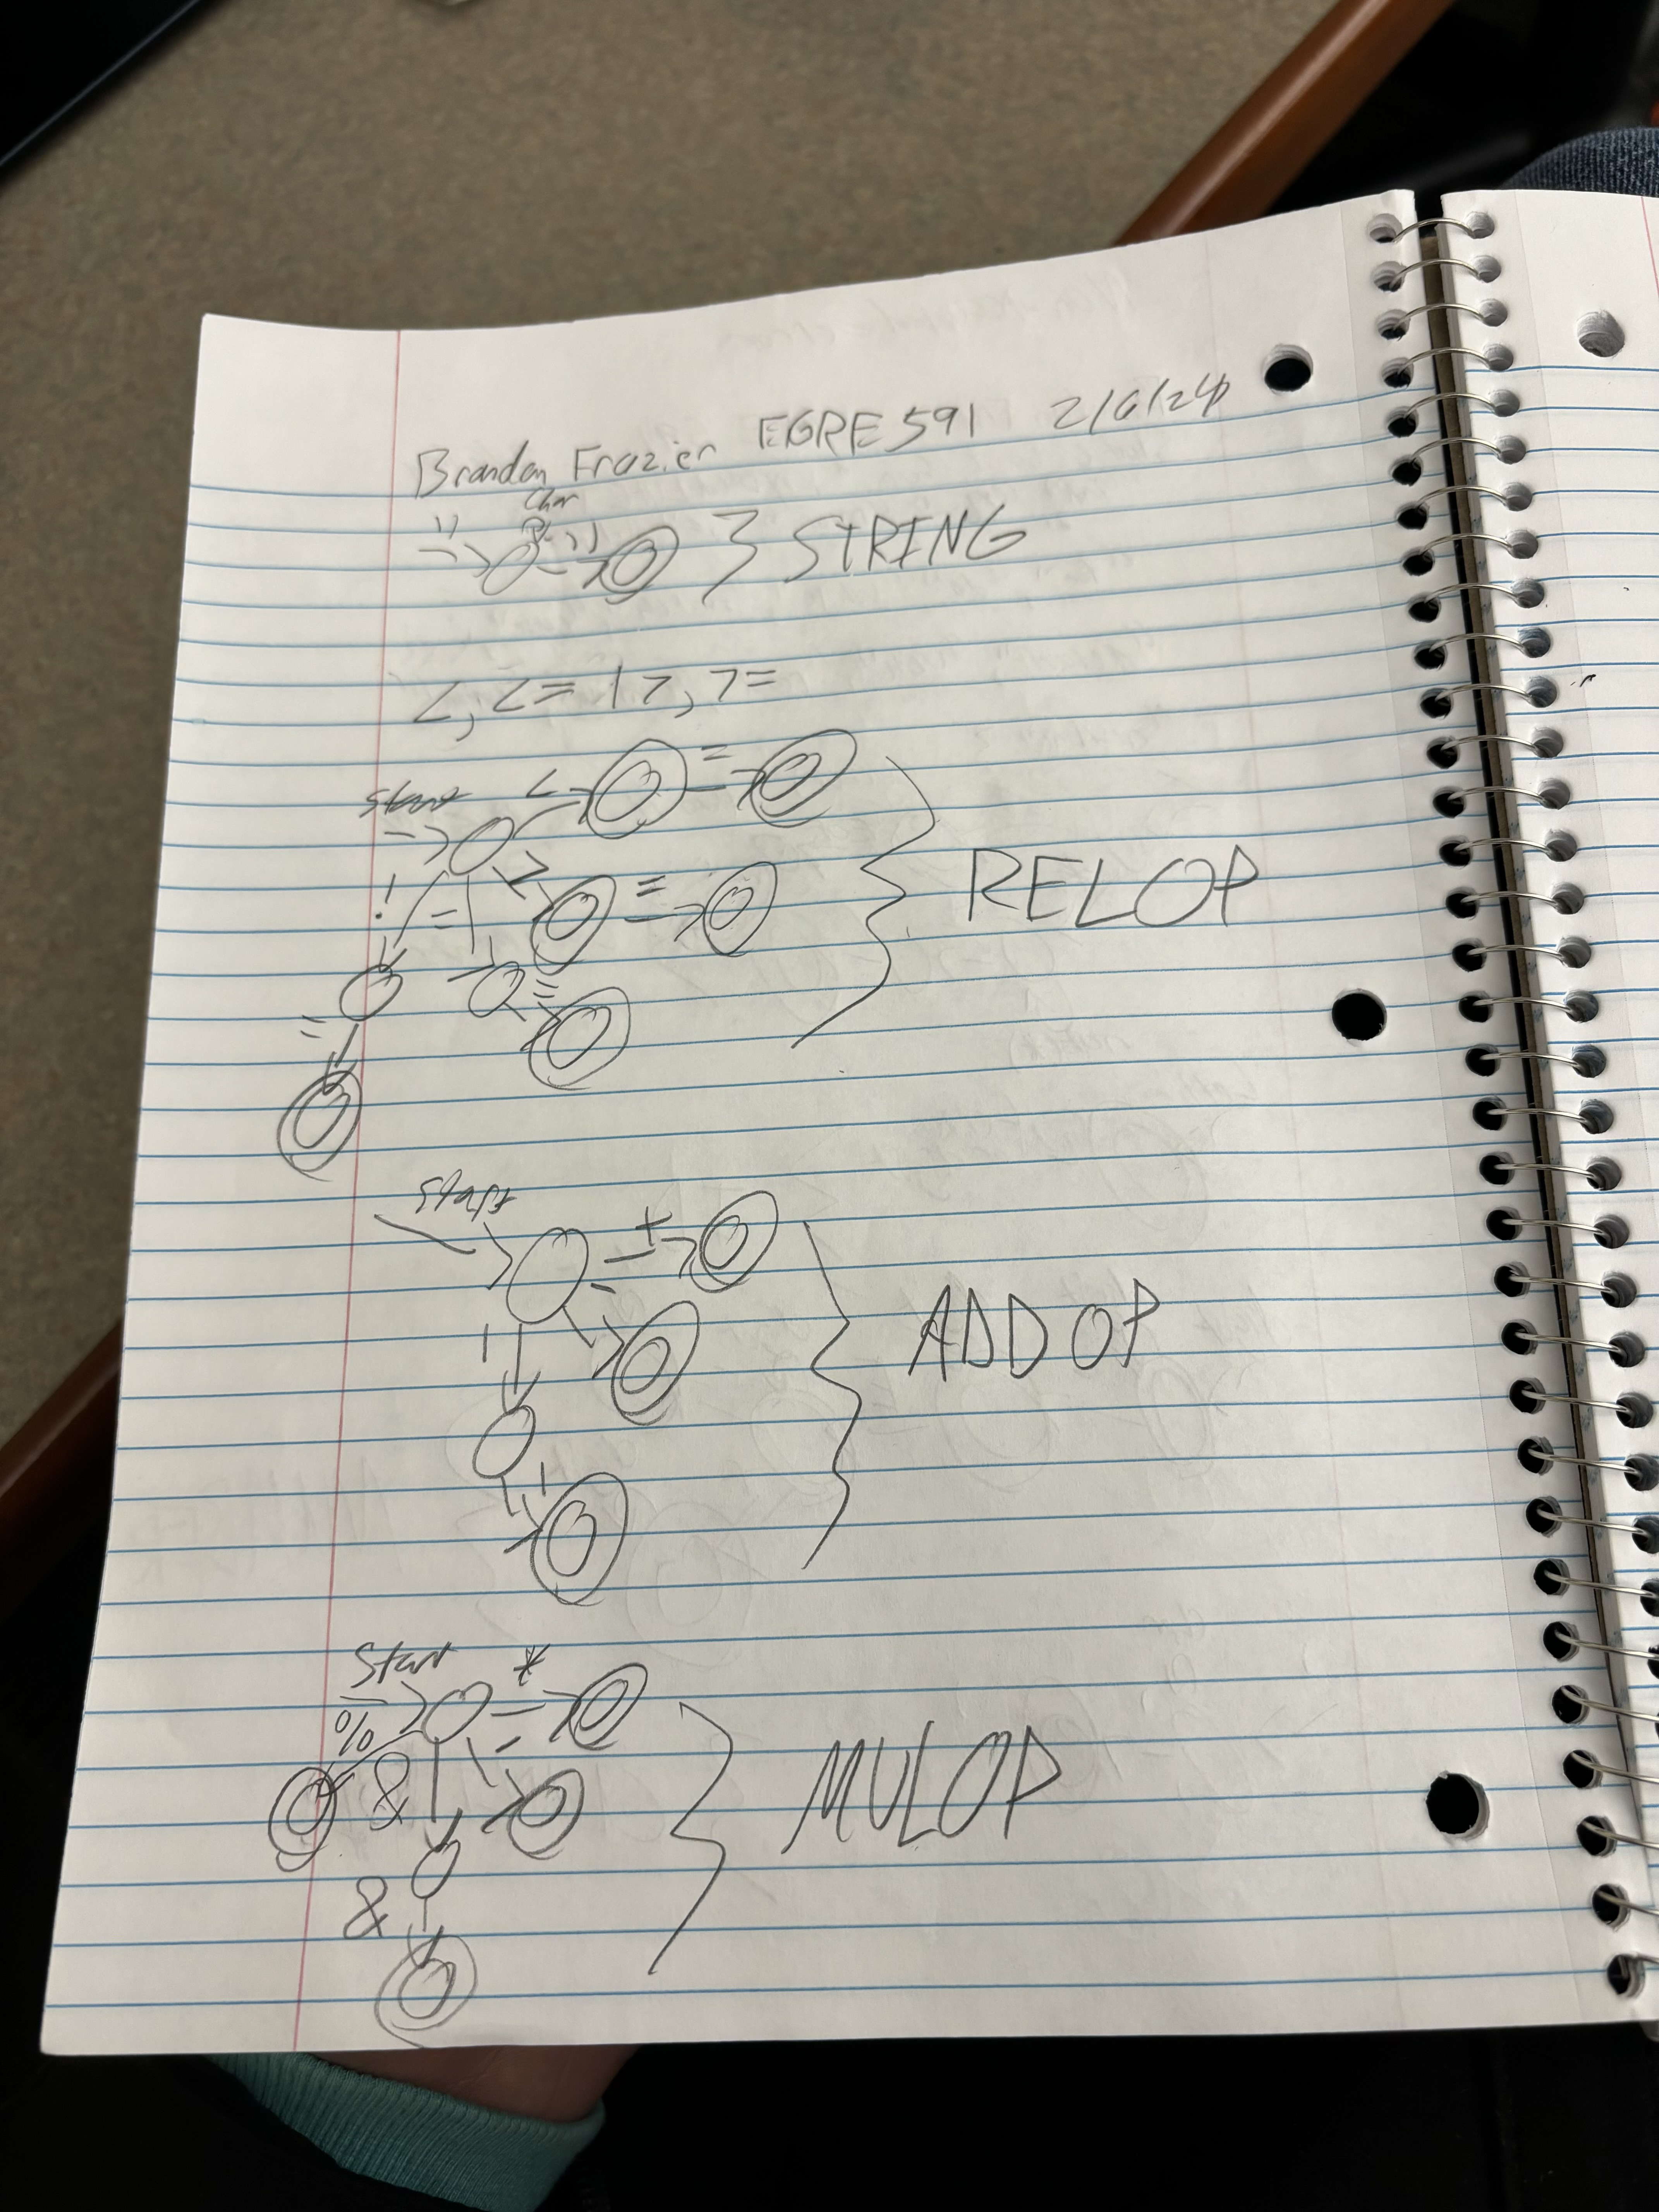 Brandon Frazier EGRE 591 2/6/24
Char
" " } STRING
<, <= | >, >=
start < =
! = > = } RELOP
= =
start + -
| } ADDOP
|
start *
% & / } MULOP
&